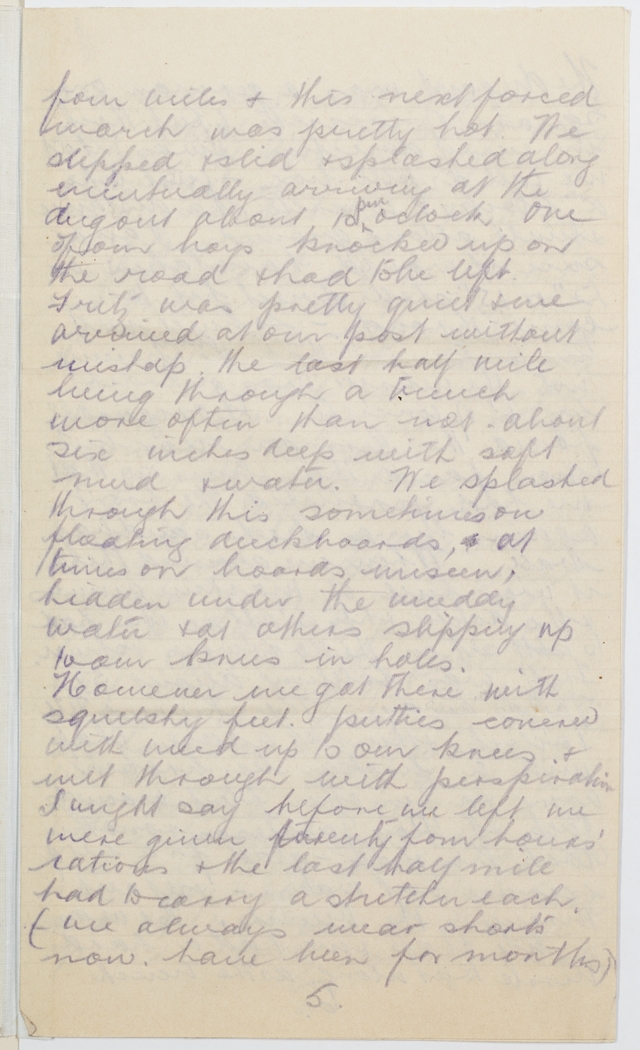 four miles & this next forced
march was pretty hot. We
slipped & slid & splashed along
eventually arriving at the
dugout about 10 pm oclock One
of our boys knocked up on
the road & had to be left.
Fritz was pretty quiet & we
arrived at our post without
mishap. the last half mile
being through a trench
more often than not about
six inches deep with soft
mud & water. We splashed
through this sometimes on
floating duckboards, & at
times on boards unseen,
hidden under the muddy
water & at others slipping up
to our knees in holes.
However we got there with
squelshy feet. putties covered
with mud up to our knees &
wet through with perspiration
I might say before we left we
were given twenty four hours'
rations & the last half mile
had to carry a stretcher each.
(we always wear shorts
now. have been for months)
5.